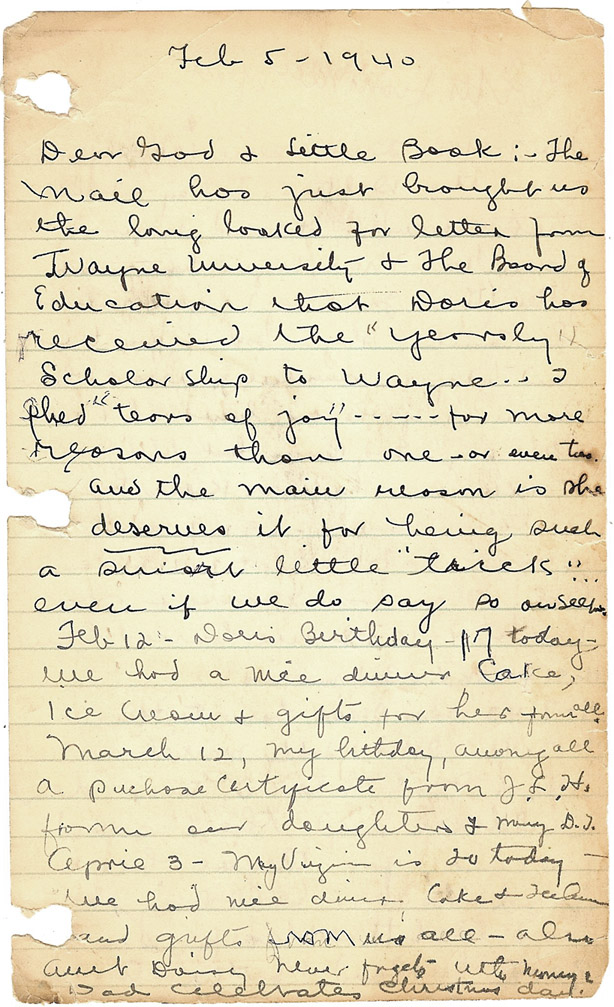 Feb 5 - 1940
Dear God & Little Book :- The
Mail has just brought us
the long looked for letter from
Wayne University & The Board of
Education that Doris has
received the "Yearsly"
Scholarship to Wayne... I
shed "tears of joy" ------ for more
reasons than one - or even two.
and the main reason is she
deserves it for being such
a smart little "trick"...
even if we do say so ourselfs.
Feb 12 - Doris Birthday - 17 today -
We had a nice dinner Cake,
Ice Cream & gifts for her from all.
March 12, my bithday, among all
a puchase Certificate from J. L. H.
fromm our daughters & Mary D. T.
Aprie 3 - May Virgin is 20 today -
We had nice diner. Cake & Ice Cream
and gufts from us all - also
aunt Daisy never forgets with money &
Dad celebrates Christmas day.